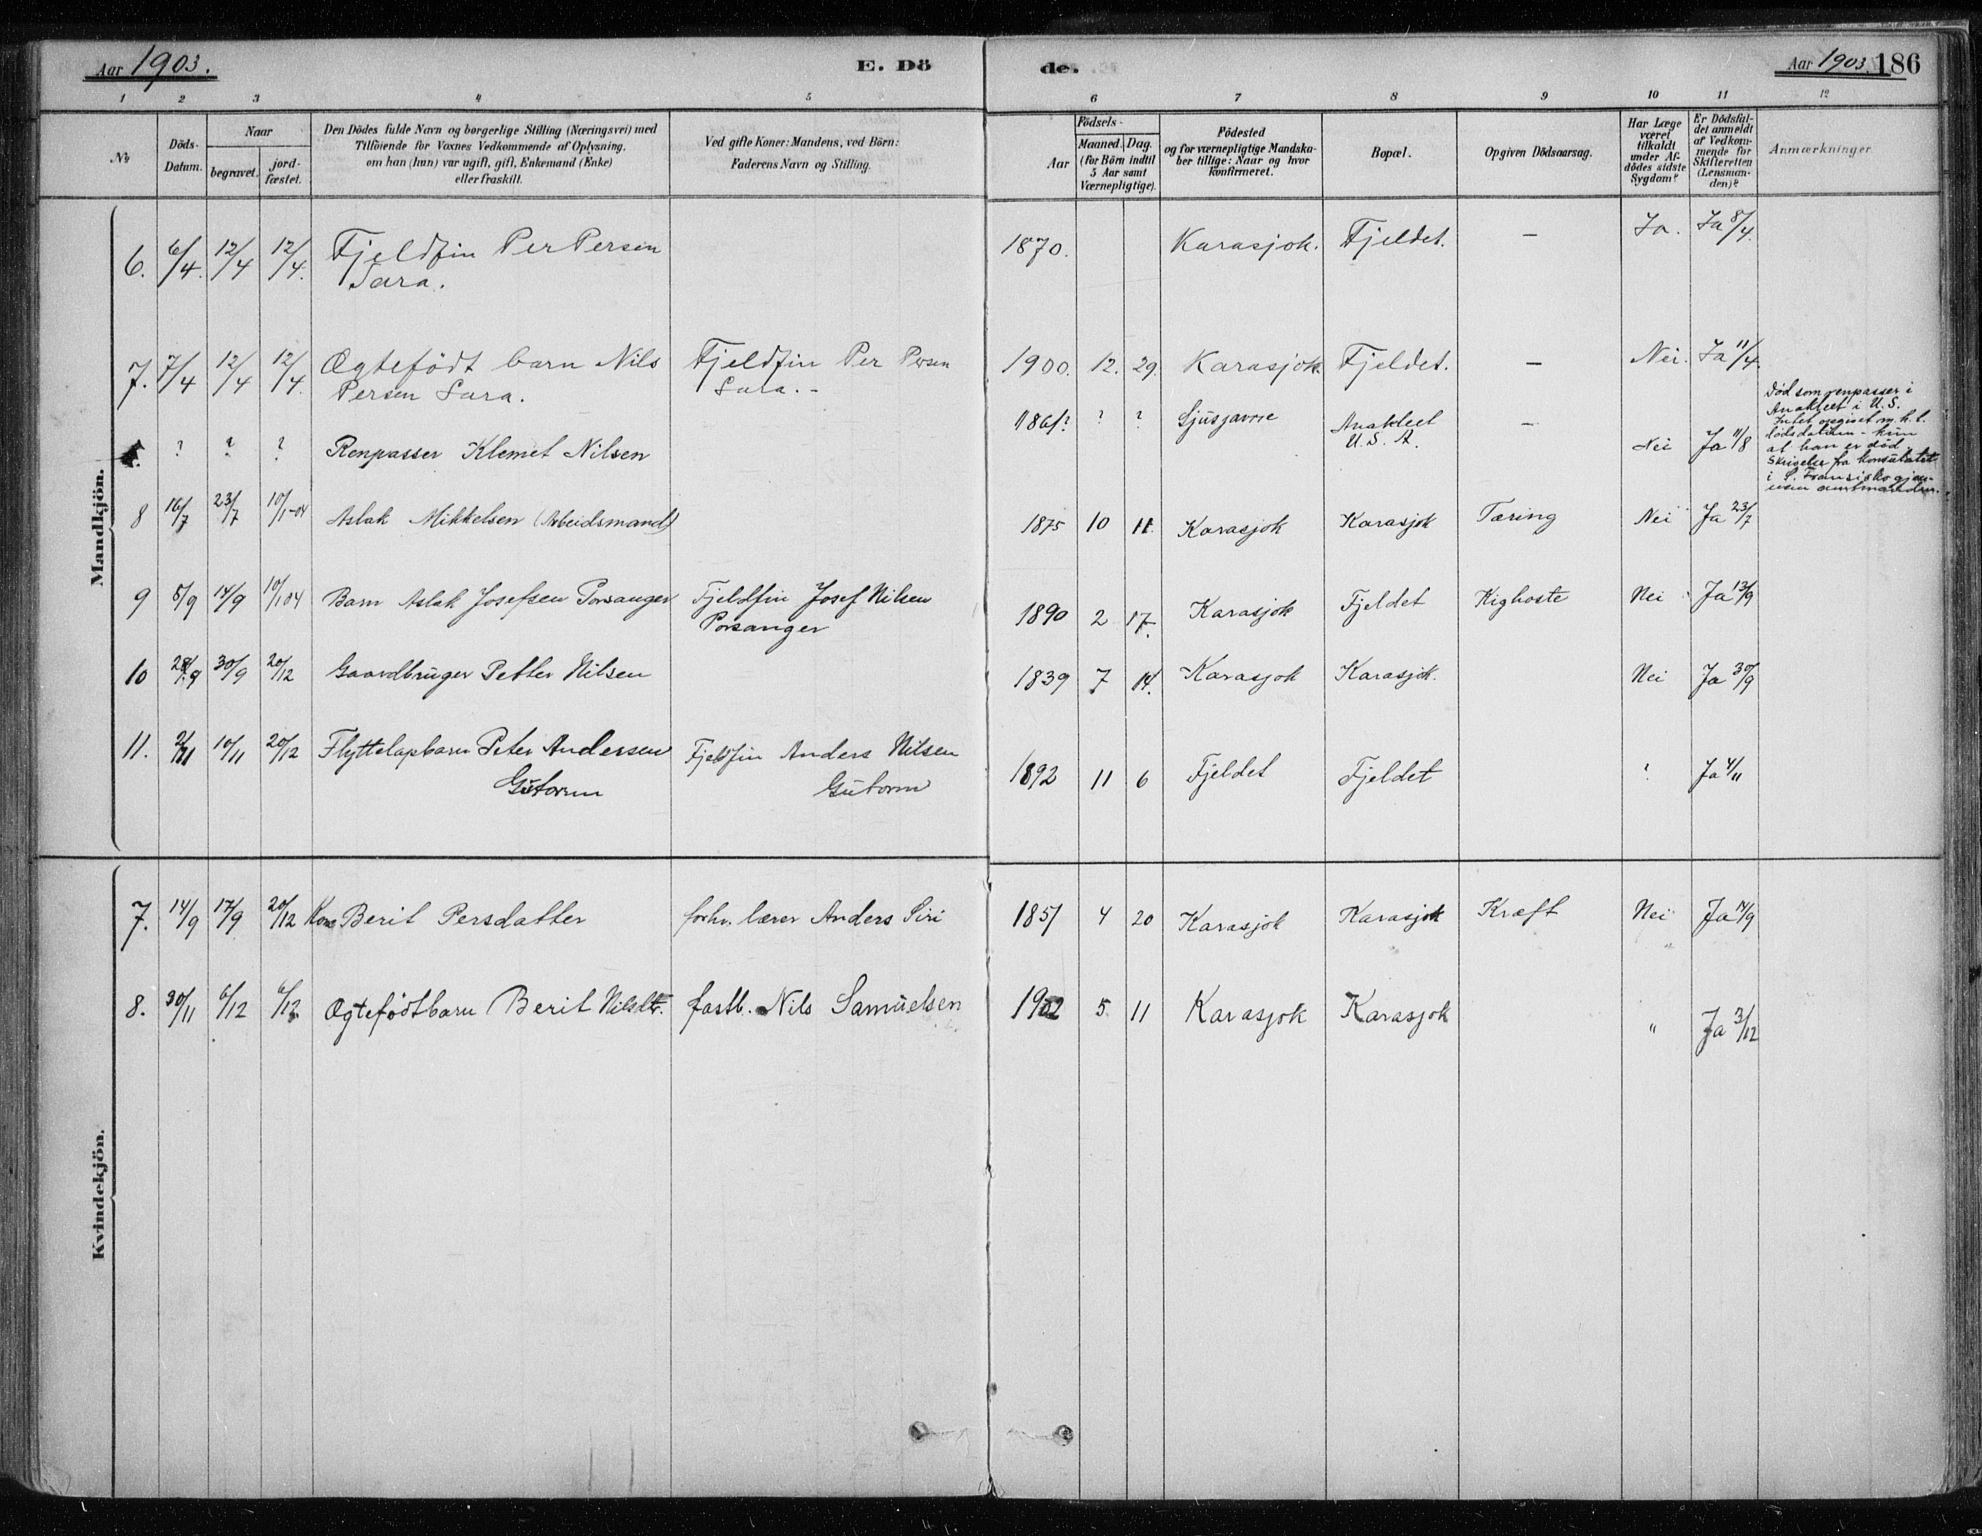 Aar 1903.
E. Dö
de.
Aar 1903. 186
1 2 3 4 5 6 7 8 9 10 11 12
No
Döds-
Datum.
Naar
begravet.
jord-
fæstet.
Den Dödes fulde Navn og borgerlige Stilling (Næringsvei) med
Tilföiende for Voxnes Vedkommende af Oplysning,
om han (hun) var ugift, gift, Enkemand (Enke)
eller fraskilt.
Ved gifte Koner: Mandens, ved Börn:
Faderens Navn og Stilling.
Födsels-
Aar
Maaned. Dag.
(for Börn indtil
5 Aar samt
Værnepligtige).
Födested
og for værnepligtige Mandska-
ber tillige: Naar og hvor
konfirmeret.
Bopæl.
Opgiven Dödsaarsag.
Har Læge
været
tilkaldt
under Af-
dödes sidste
Sygdom?
Er Dödsfal-
det anmeldt
af Vedkom-
mende for
Skifteretten
(Lensman-
den)?
Anmærkninger
Mandkjön.
6. 6/4. 12/4 12/4. Fjeldfin Per Persen 1870. Karasjok. Fjeldet. — Ja. Ja 8/4.
Sara.
7. 7/4 12/4 12/4. Ægtefödt barn Nils Fjeldfin Per Persen 1900. 12. 29. Karasjok. Fjeldet. — Nei. Ja 11/4.
Persen Sara. Sara. -
? ? ? Renpasser Klemet Nilsen ? ? Anakleet — Nei Ja 11/8
U. S. A.
Död som renpasser i
Anakleet i U. S.
Intet opgivet m. h. t.
dödsdatum - kun
at han er död.
Skrivelse fra konsulatet
i S. Fransisko gjen-
nem amtmanden.
8 16/7 23/7 10/1-04 Aslak Mikkelsen (Arbeidsmand) 1875 10 11. Karasjok Karasjok Tæring Nei Ja 23/7
9 5/9 14/9 10/1 04 Barn Aslak Josefsen Porsanger Fjeldfin Josef Nilsen 1890 2 17. Karasjok Fjeldet Kighoste Nei Ja 13/9
Porsanger
10 28/9 30/9 20/12 Gaardbruger Petter Nilsen 1839 7 14. Karasjok Karasjok. Nei Ja 30/9
11. 2/11 10/11 20/12 Flyttelapbarn Peter Andersen Fjeldfin Anders Nilsen 1892 11 6 Fjeldet Fjeldet ? Ja 4/11
Gutorm Gutorm
Kvindekjön.
7. 14/9 17/9 20/12 Kone Berit Persdatter forhv. lærer Anders Siri 1851 4 20 Karasjok Karasjok Kræft Nei Ja
8. 30/11 6/12 6/12 Ægtefödtbarn Berit Nilsdtr. fastb. Nils Samuelsen 1902 5 11 Karasjok Karasjok " Ja 3/12